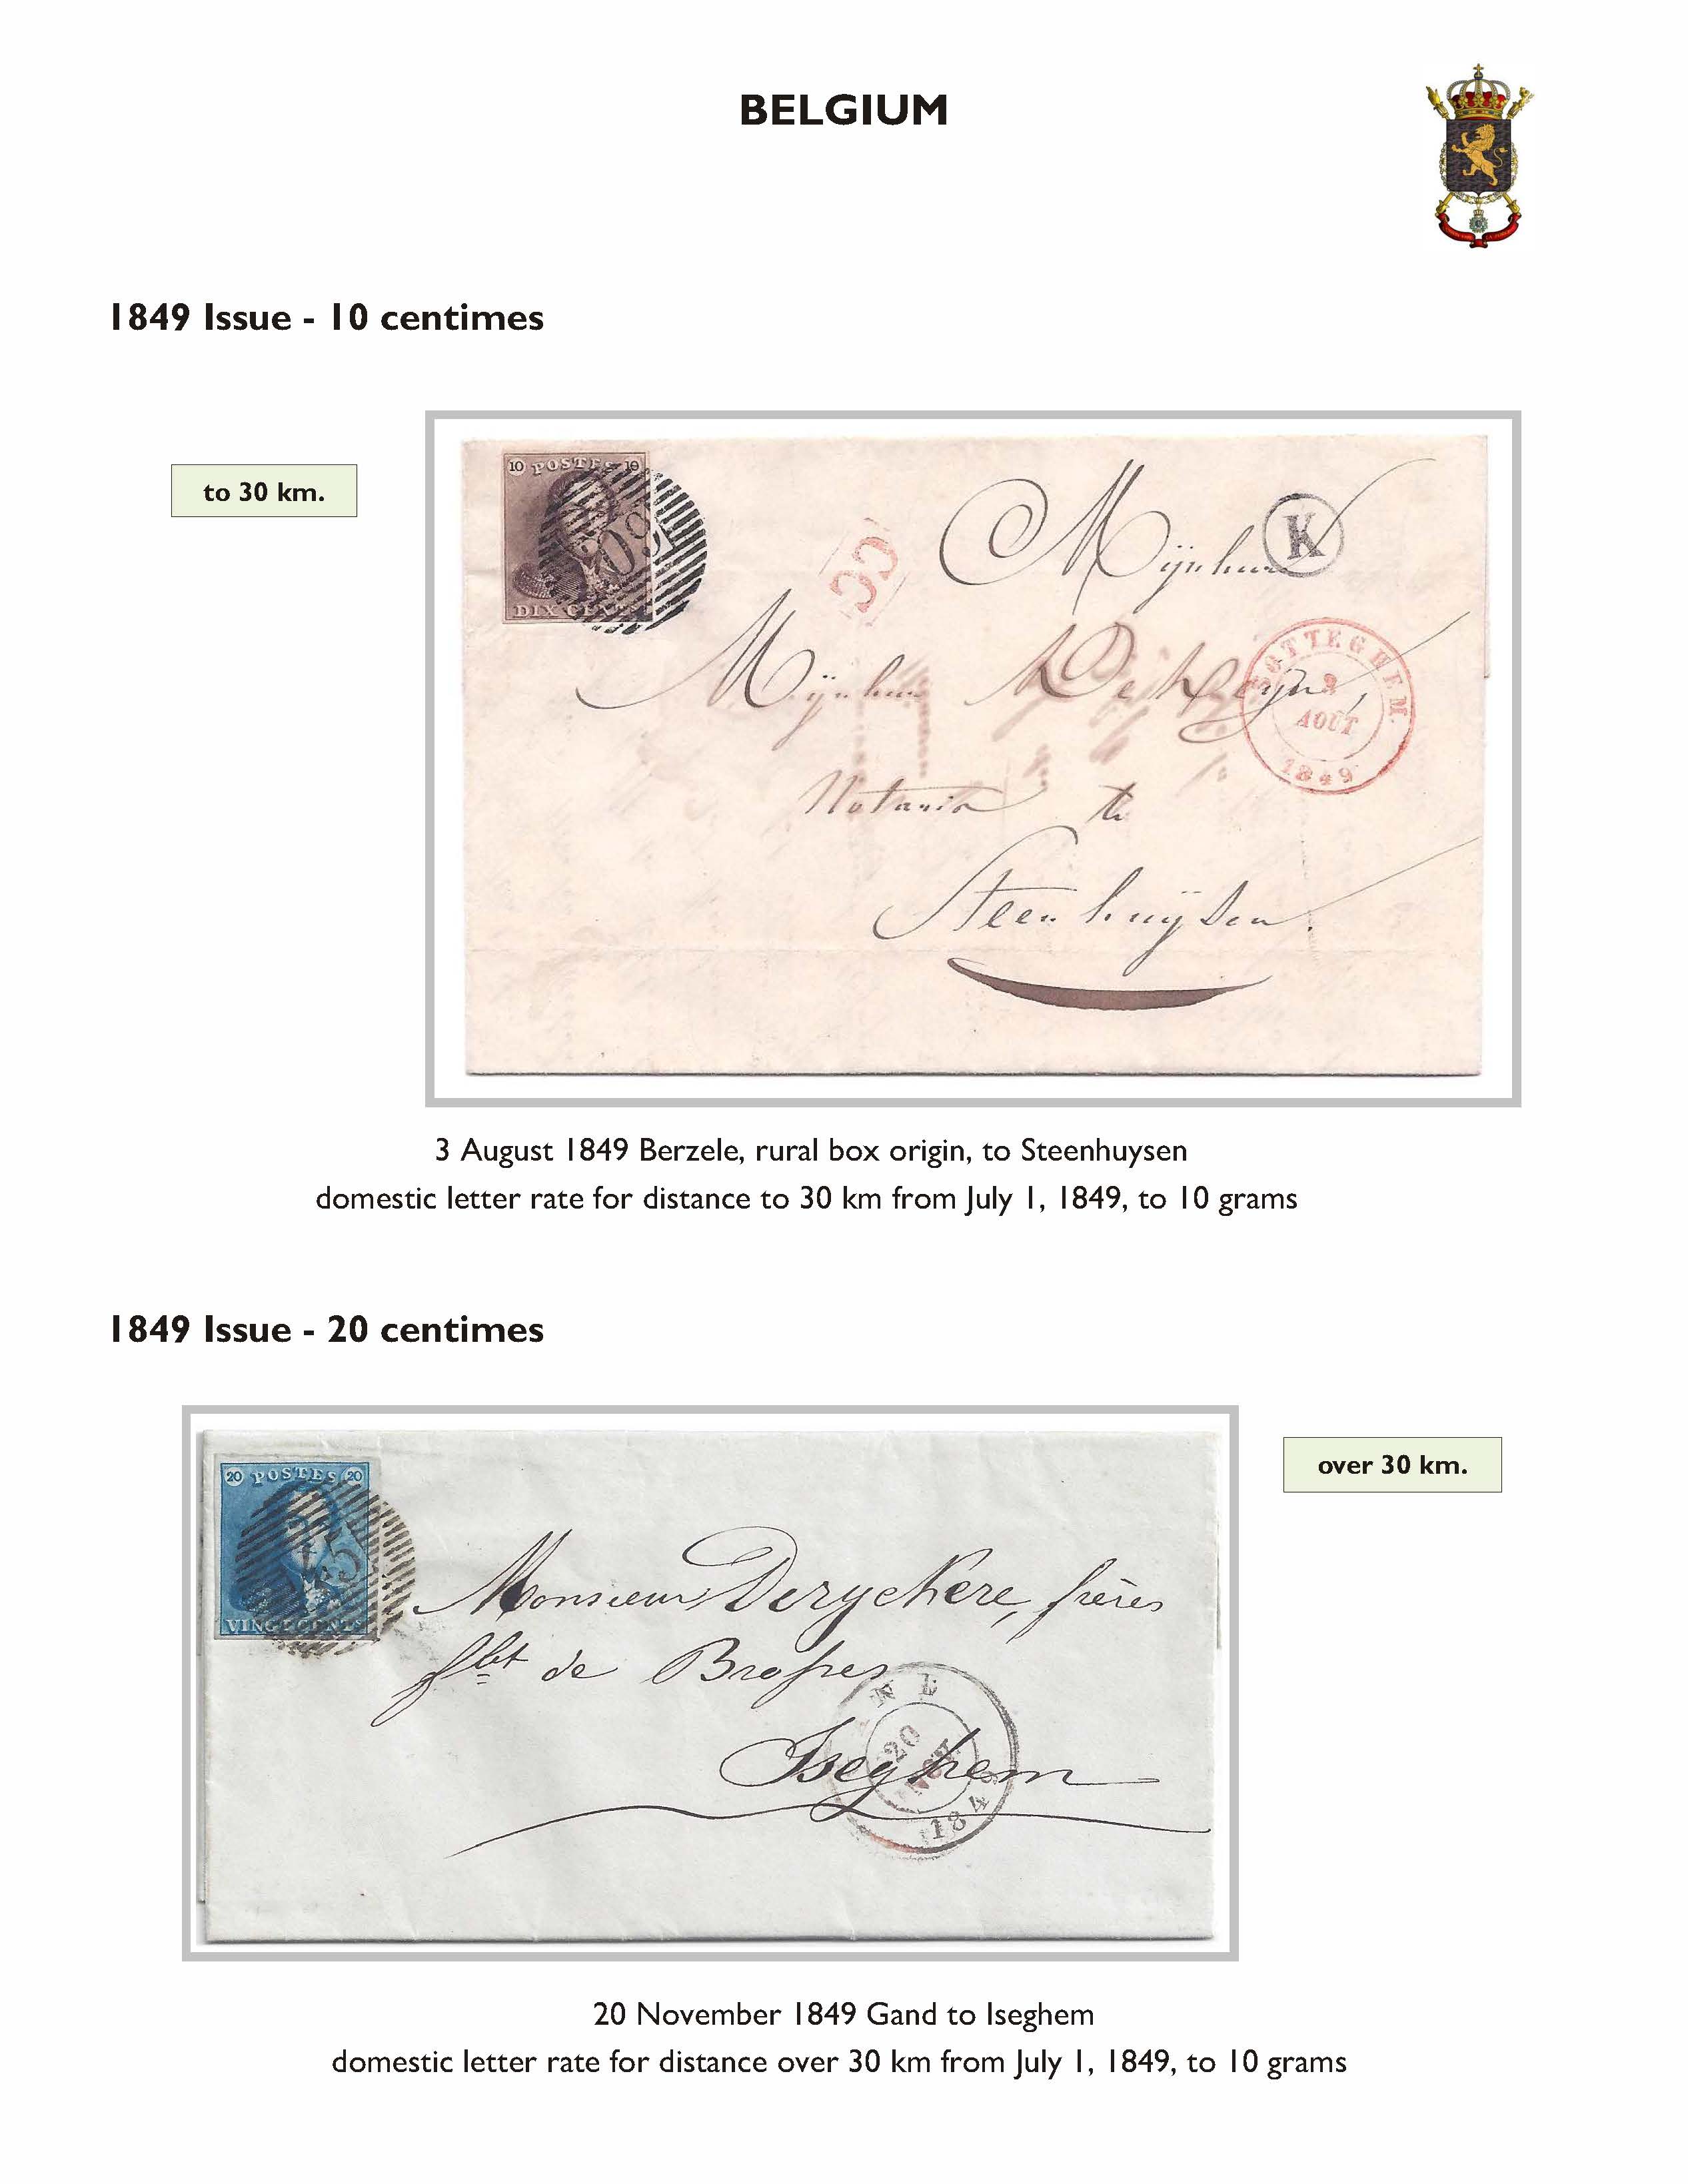 BELGIUM
1849 Issue - 10 centimes
to 30 km.
10 POSTES 10
DIX CENTS
CC
K
Mijnheer
Mijnheer
SOTTEGHEM
AOÛT
1849
Notaris te
Steenhuysen.
3 August 1849 Berzele, rural box origin, to Steenhuysen
domestic letter rate for distance to 30 km from July 1, 1849, to 10 grams
1849 Issue - 20 centimes
over 30 km.
20 POSTES 20
VINGT CENTS
Monsieur Deryckere, frères
fbt de
Iseghem
20
NOV
184
20 November 1849 Gand to Iseghem
domestic letter rate for distance over 30 km from July 1, 1849, to 10 grams